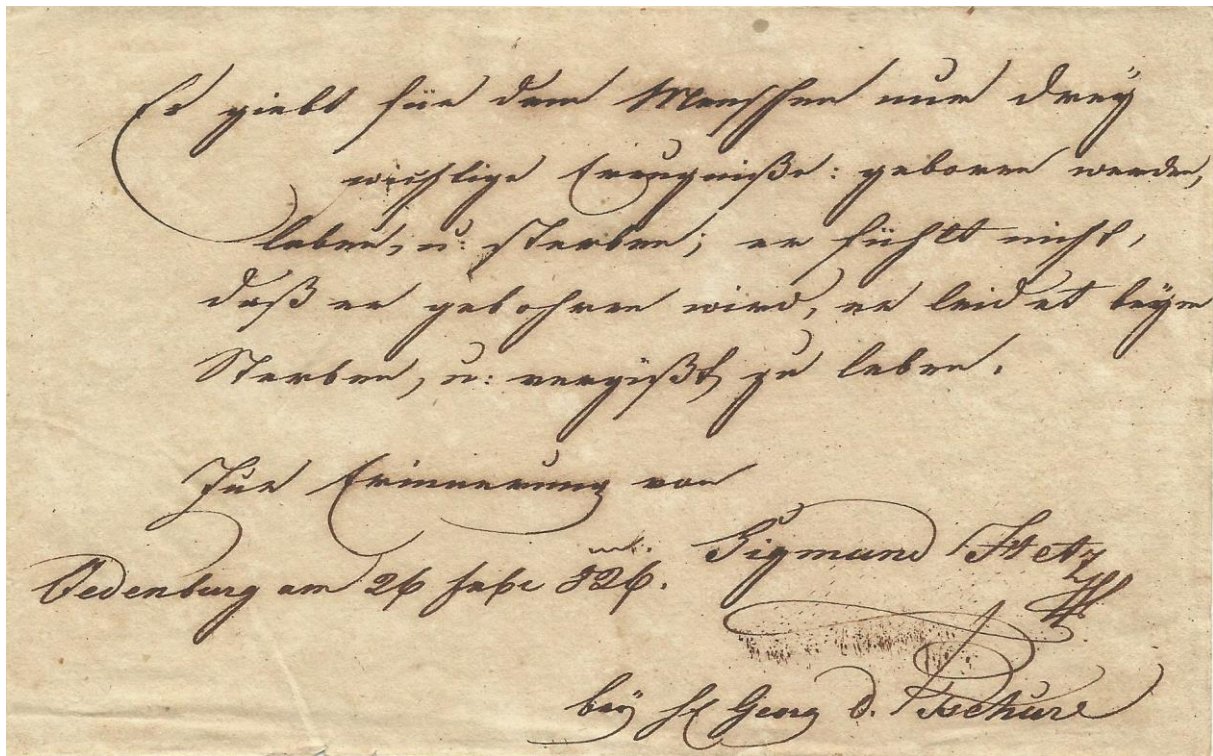 Es giebt für dem Menschen nur drey
wichtige Ereugniße: geboren werden,
leben, u: sterben; er fühlt nicht,
daß er gebohren wird, er leidet beym
Sterben, u: vergißt, zu leben.
Zur Erinnerung von
Sigmund
Oedenburg am 26 826.
bey Georg d.